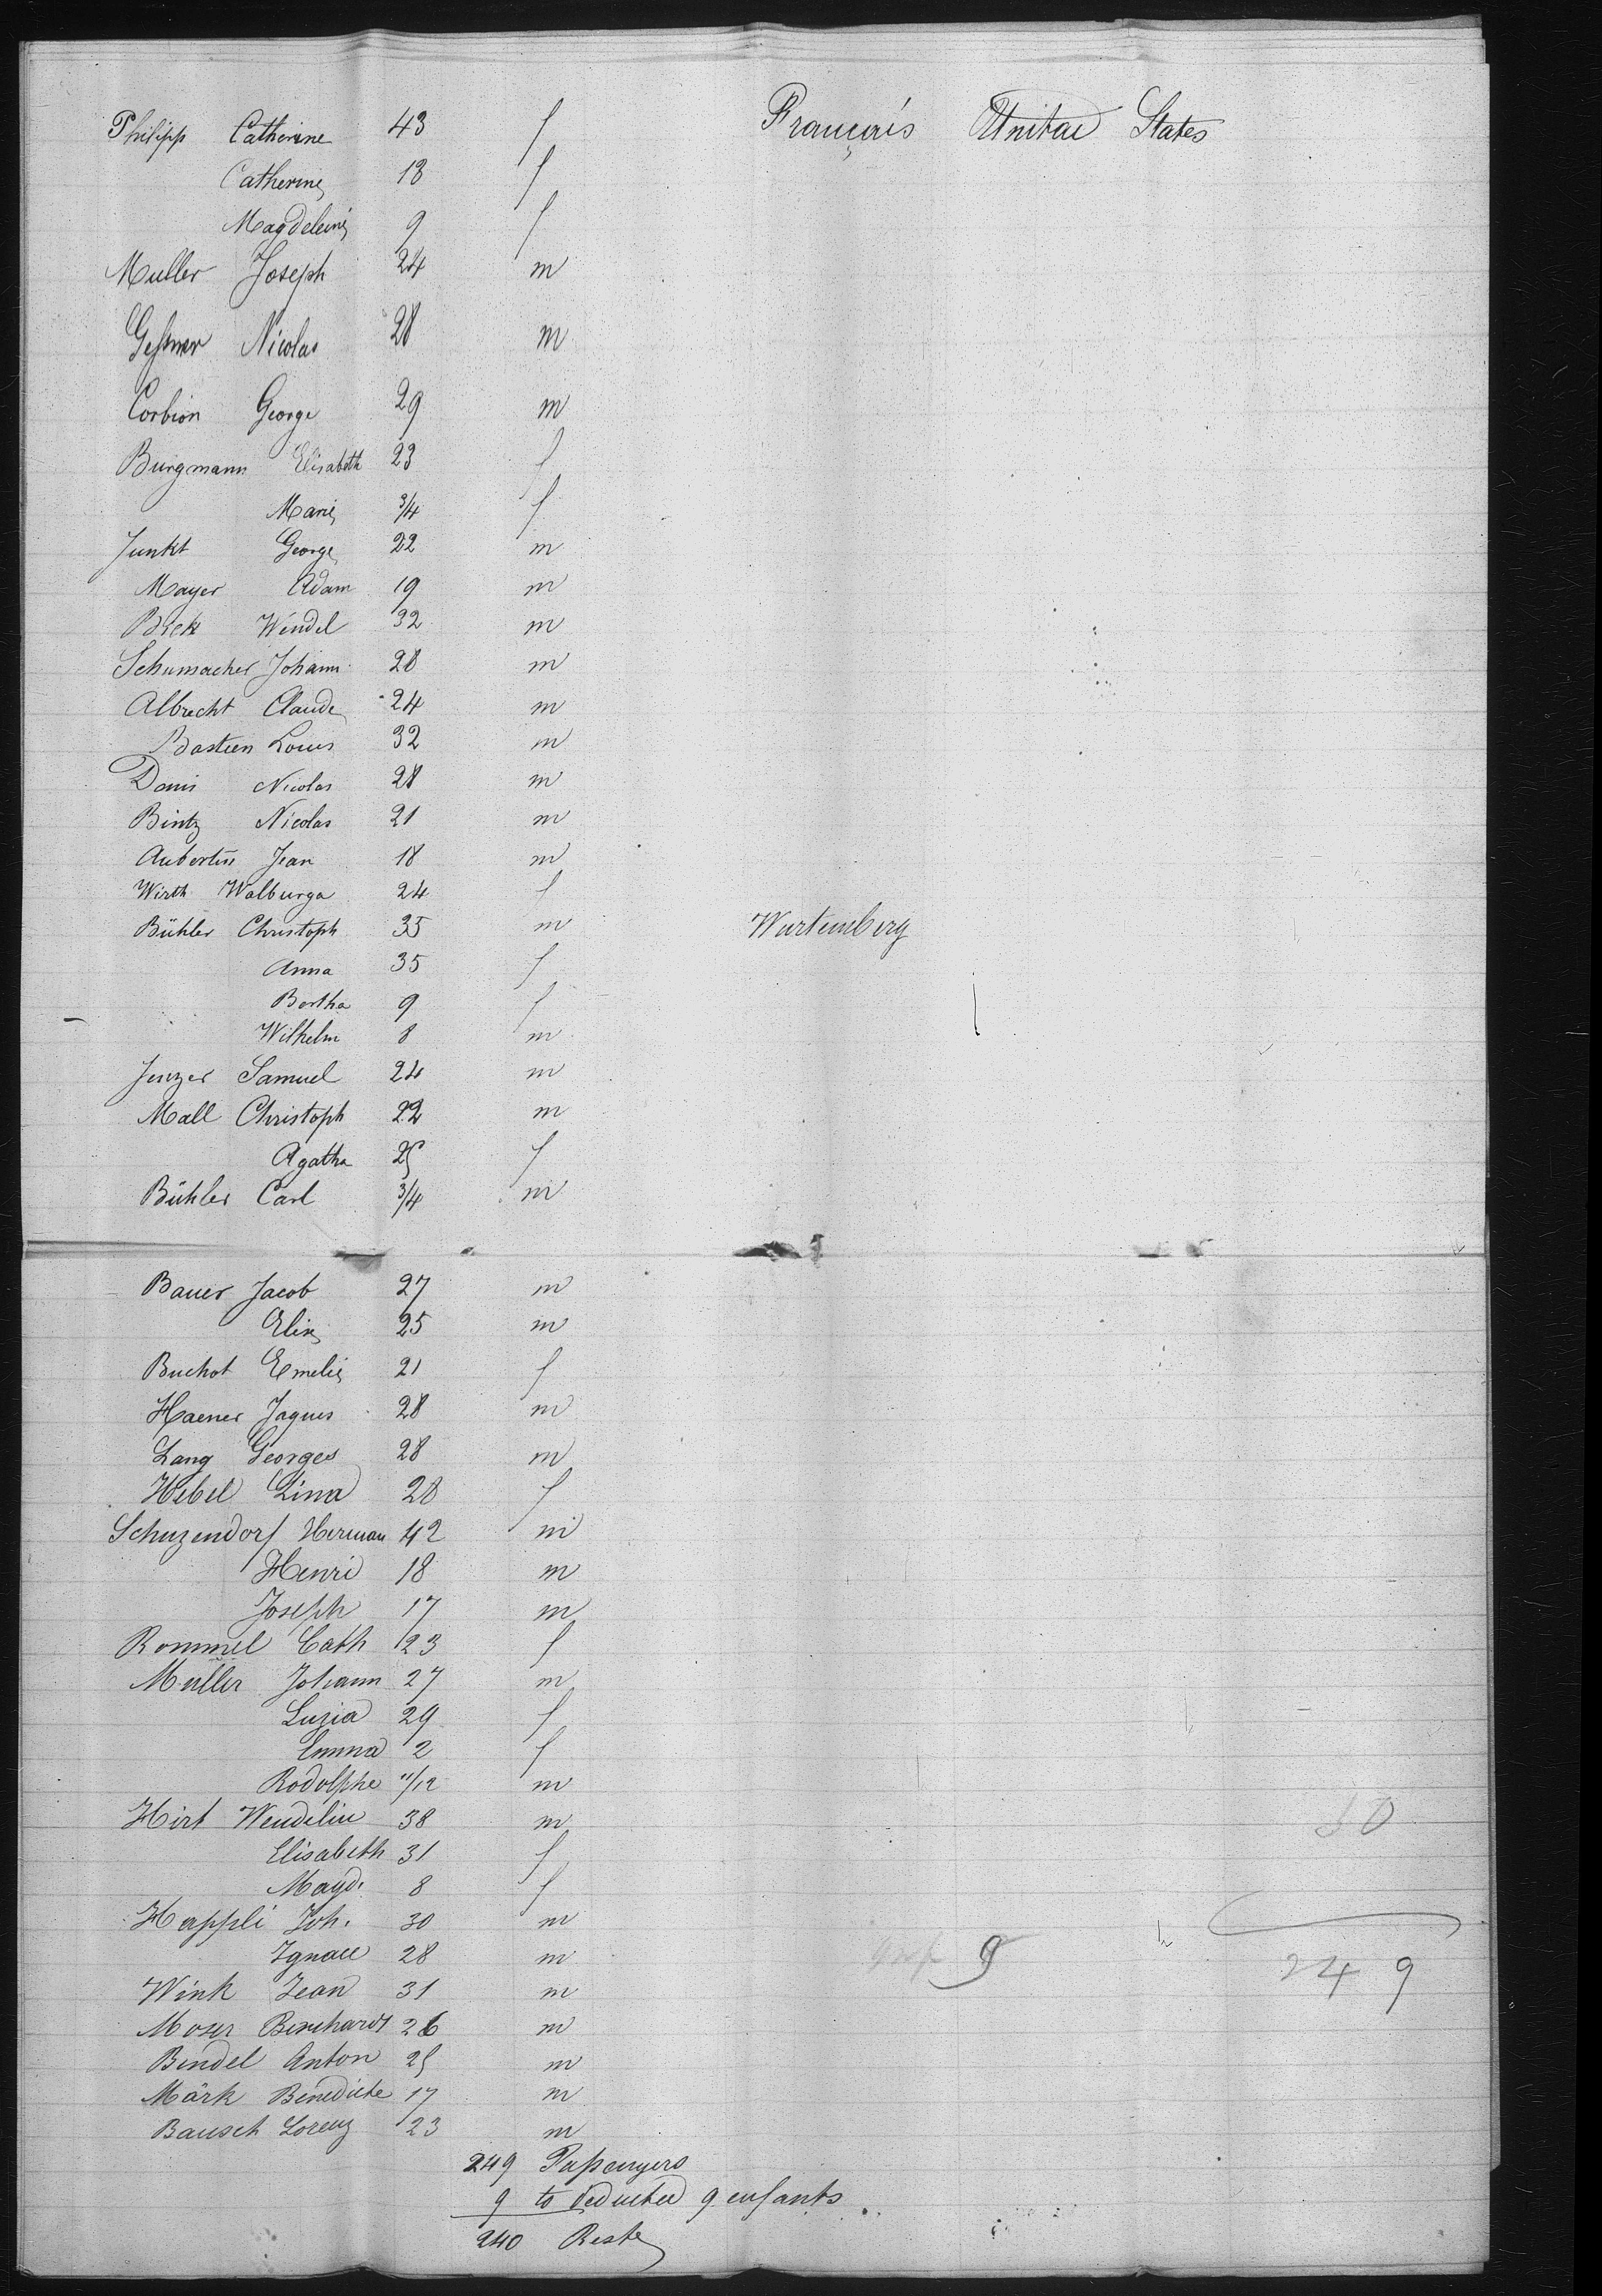 Philipp Catherine 43 f Français Unitae States
Catherine 13 f
Magdeleine 9 f
Muller Joseph 24 m
Geßner Nicolas 28 m
Corbion George 29 m
Burgmann Elisabeth 23 f
Marie 3/4 f
Junkt George 22 m
Mayer Adam 19 m
Wendel 32 m
Schumacher Johann 28 m
Albrecht Claude 24 m
Bastien Louis 32 m
Nicolas 28 m
Bintz Nicolas 21 m
Aubertin Jean 18 m
Wirth Walburga 24 f
Bühler Christoph 35 m Wurtemberg
Anna 35 f
Bertha 9 f
Wilhelm 8 m
Jenzer Samuel 24 m
Mall Christoph 22 m
Agatha 25 f
Bühler Carl 3/4 m
Bauer Jacob 27 m
Elise 25 m
Buchot Emelie 21 f
Haener Jaques 28 m
Lang Georges 28 m
Hebel Lina 28 f
Schuzendorf Herman 42 m
Henri 18 m
Joseph 17 m
Rommel Cath 23 f
Müller Johann 27 m
Luzia 29 f
Emma 2 f
Rodolphe 11/12 m
Hirt Wendelin 38 m
Elisabeth 31 f
Magd. 8 f
Happli Joh. 30 m
Ignace 28 m 9 249
Wink Jean 31 m
Moser Bernhardt 26 m
Bendel Anton 25 m
Märk Benedicte 17 m
Bausch Lorenz 23 m
249 Paßengers
9 to deducted 9 enfants
240 Reste